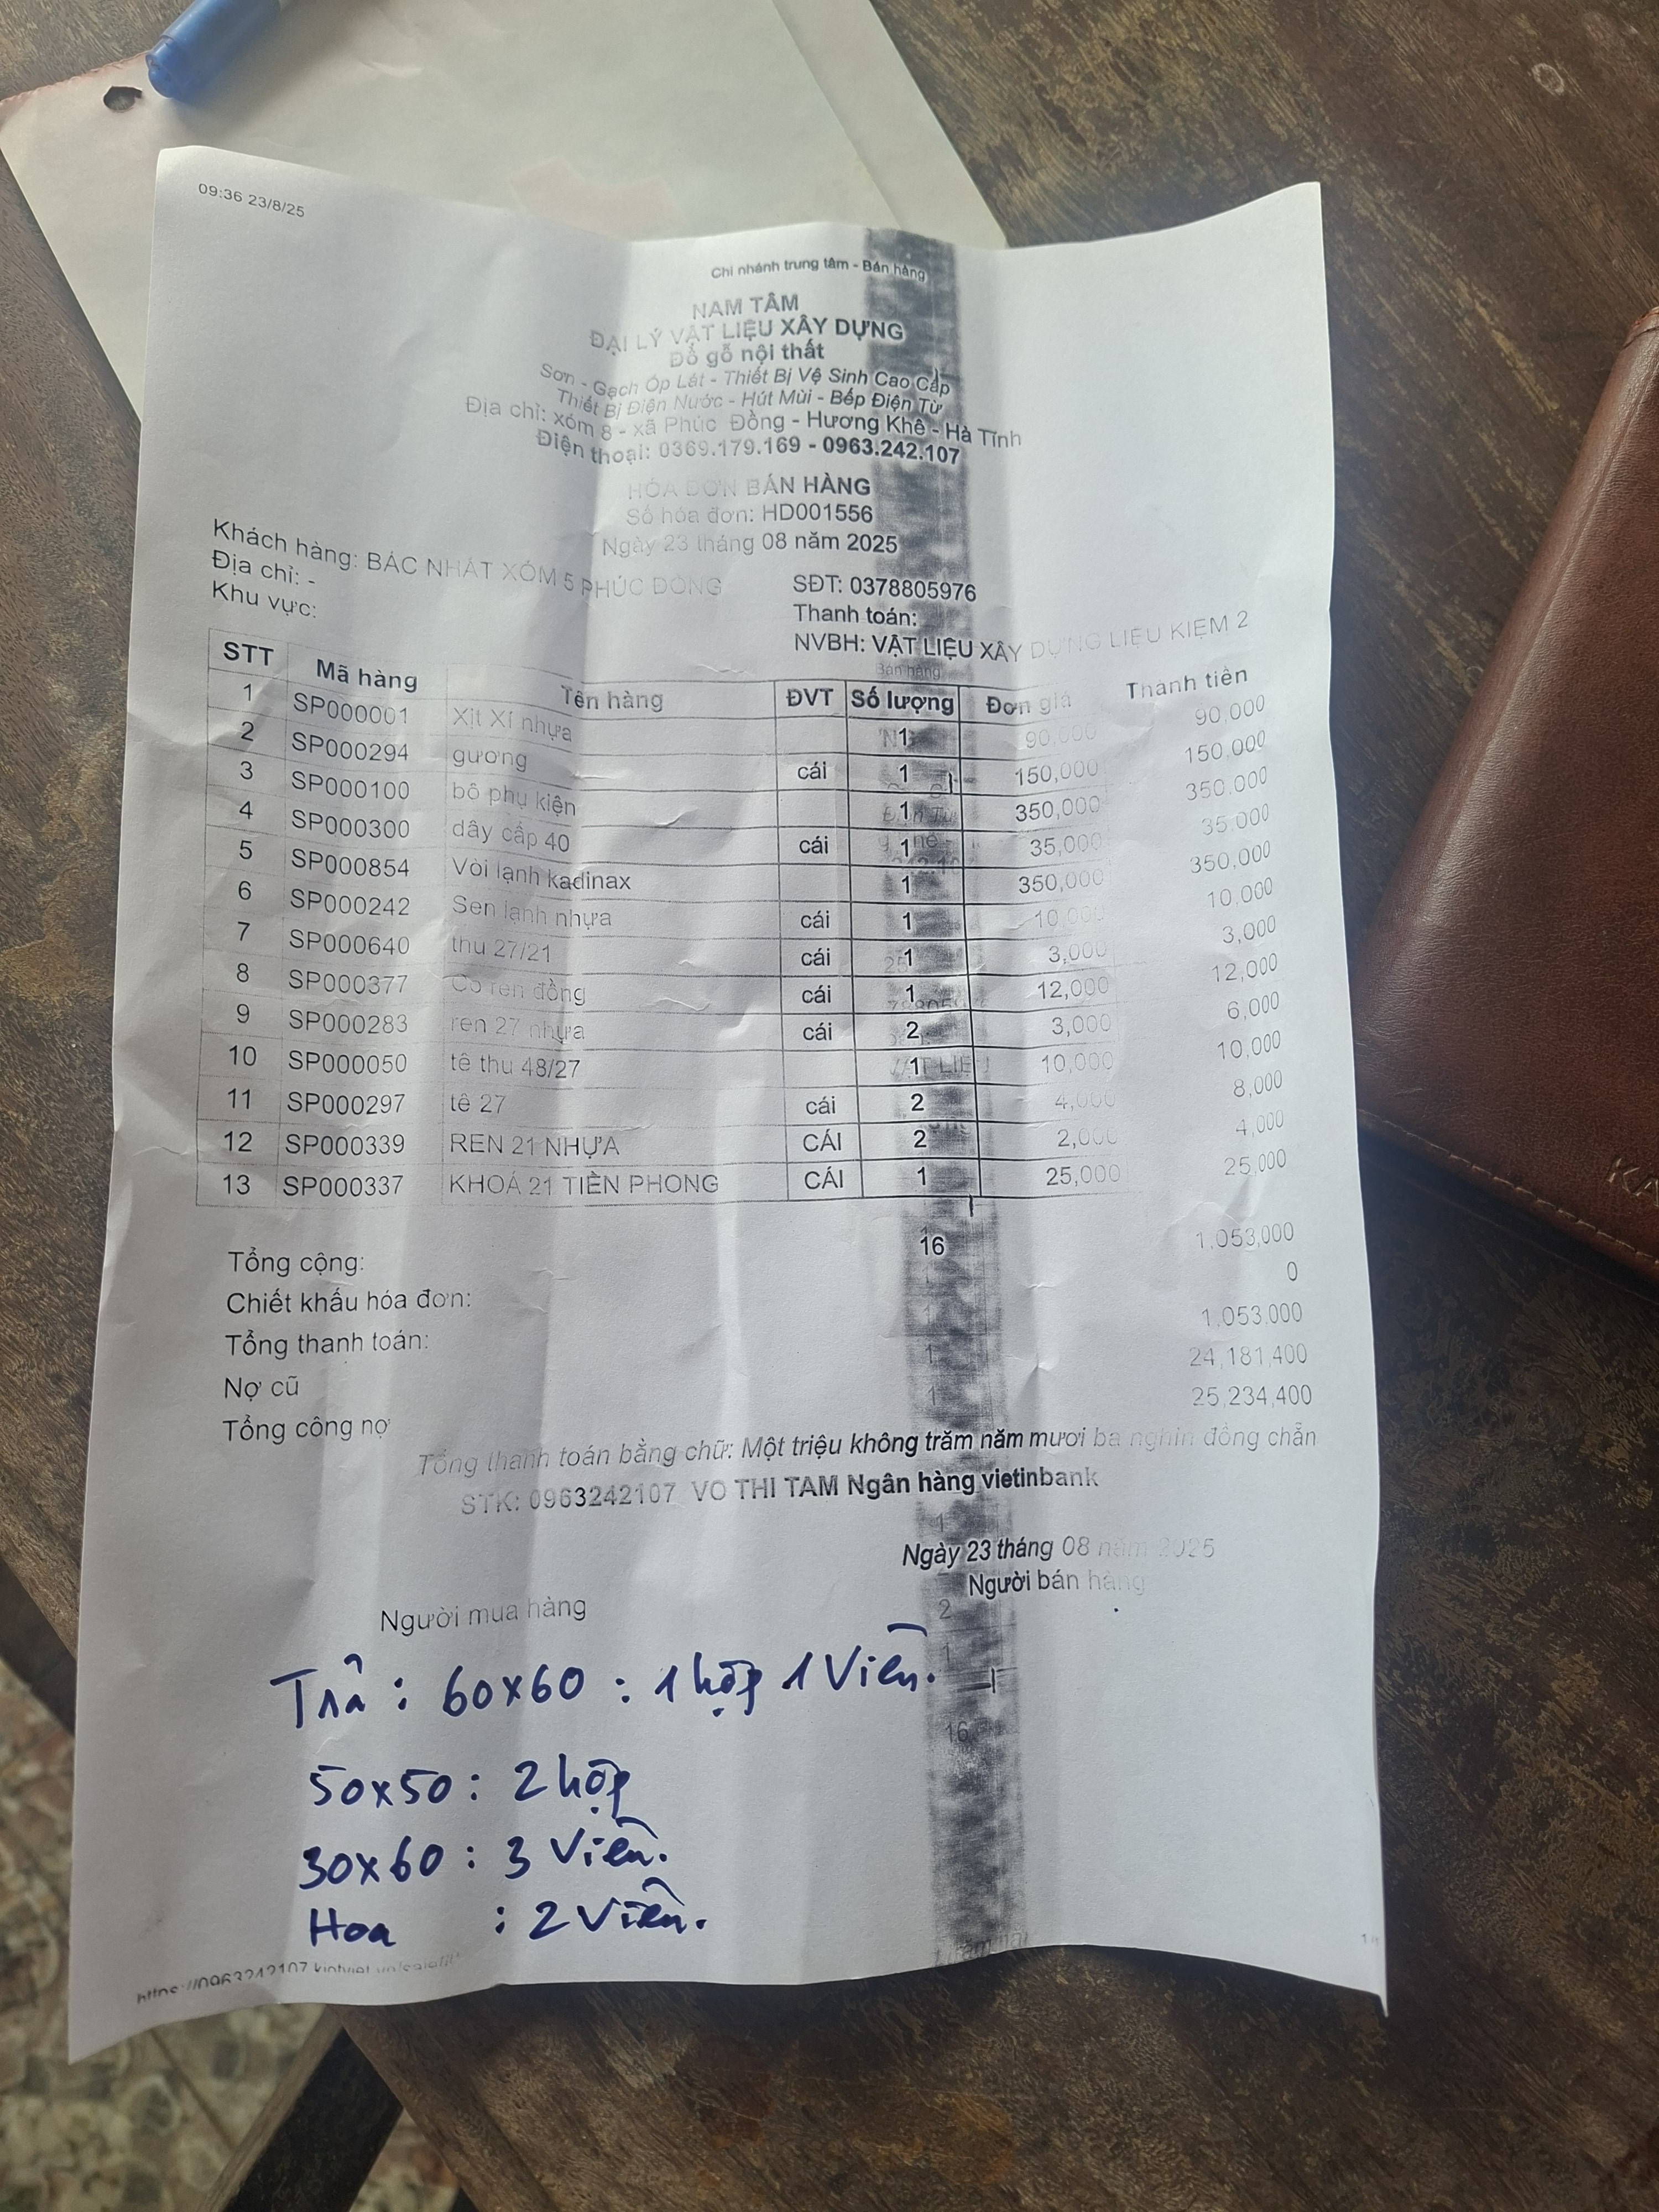 09:36 23/8/25
Chi nhánh trung tâm - Bán hàng
NAM TÂM
ĐẠI LÝ VẬT LIỆU XÂY DỰNG
Đồ gỗ nội thất
Sơn - Gạch Ốp Lát - Thiết Bị Vệ Sinh Cao Cấp
Thiết Bị Điện Nước - Hút Mùi - Bếp Điện Từ
Địa chỉ: xóm 8 - xã Phúc Đồng - Hương Khê - Hà Tĩnh
Điện thoại: 0369.179.169 - 0963.242.107
HÓA ĐƠN BÁN HÀNG
Số hóa đơn: HD001556
Ngày 23 tháng 08 năm 2025
Khách hàng: BÁC NHẬT XÓM 5 PHÚC ĐỒNG SĐT: 0378805976
Địa chỉ: - Thanh toán:
Khu vực: NVBH: VẬT LIỆU XÂY DỰNG LIỆU KIỆM 2
STT Mã hàng Tên hàng ĐVT Số lượng Đơn giá Thành tiền
1 SP000001 Xịt Xí nhựa 1 90,000 90,000
2 SP000294 gương cái 1 150,000 150,000
3 SP000100 bộ phụ kiện 1 350,000 350,000
4 SP000300 dây cấp 40 cái 1 35,000 35,000
5 SP000854 Vòi lạnh kadinax 1 350,000 350,000
6 SP000242 Sen lạnh nhựa cái 1 10,000 10,000
7 SP000640 thu 27/21 cái 1 3,000 3,000
8 SP000377 Co ren đồng cái 1 12,000 12,000
9 SP000283 ren 27 nhựa cái 2 3,000 6,000
10 SP000050 tê thu 48/27 1 10,000 10,000
11 SP000297 tê 27 cái 2 4,000 8,000
12 SP000339 REN 21 NHỰA CÁI 2 2,000 4,000
13 SP000337 KHOÁ 21 TIỀN PHONG CÁI 1 25,000 25,000
Tổng cộng: 16 1,053,000
Chiết khấu hóa đơn: 0
Tổng thanh toán: 1,053,000
Nợ cũ 24,181,400
Tổng công nợ 25,234,400
Tổng thanh toán bằng chữ: Một triệu không trăm năm mươi ba nghìn đồng chẵn
STK: 0963242107 VO THI TAM Ngân hàng vietinbank
Ngày 23 tháng 08 năm 2025
Người mua hàng Người bán hàng
Trả : 60x60 : 1 hộp 1 Viên.
50x50 : 2 hộp
30x60 : 3 Viên.
Hoa : 2 Viên.